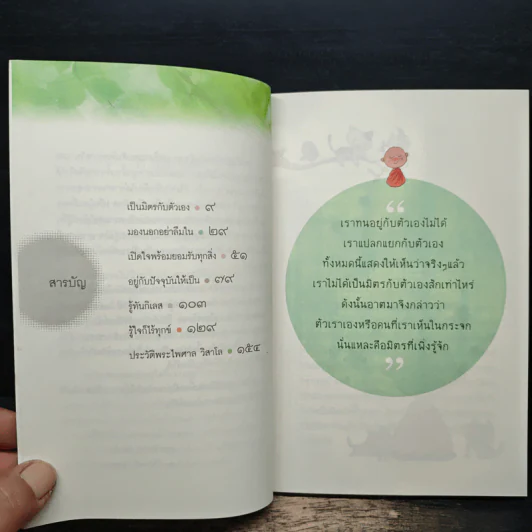 สารบัญ
เป็นมิตรกับตัวเอง ๙
มองนอกอย่าลืมใน ๒๙
เปิดใจพร้อมยอมรับทุกสิ่ง ๕๑
อยู่กับปัจจุบันให้เป็น ๗๙
รู้ทันกิเลส ๑๐๓
รู้ใจก็ไร้ทุกข์ ๑๒๙
ประวัติพระไพศาล วิสาโล ๑๕๔
“
เราทนอยู่กับตัวเองไม่ได้
เราแปลกแยกกับตัวเอง
ทั้งหมดนี้แสดงให้เห็นว่าจริงๆแล้ว
เราไม่ได้เป็นมิตรกับตัวเองสักเท่าไหร่
ดังนั้นอาตมาจึงกล่าวว่า
ตัวเราเองหรือคนที่เราเห็นในกระจก
นั่นแหละคือมิตรที่เพิ่งรู้จัก
”